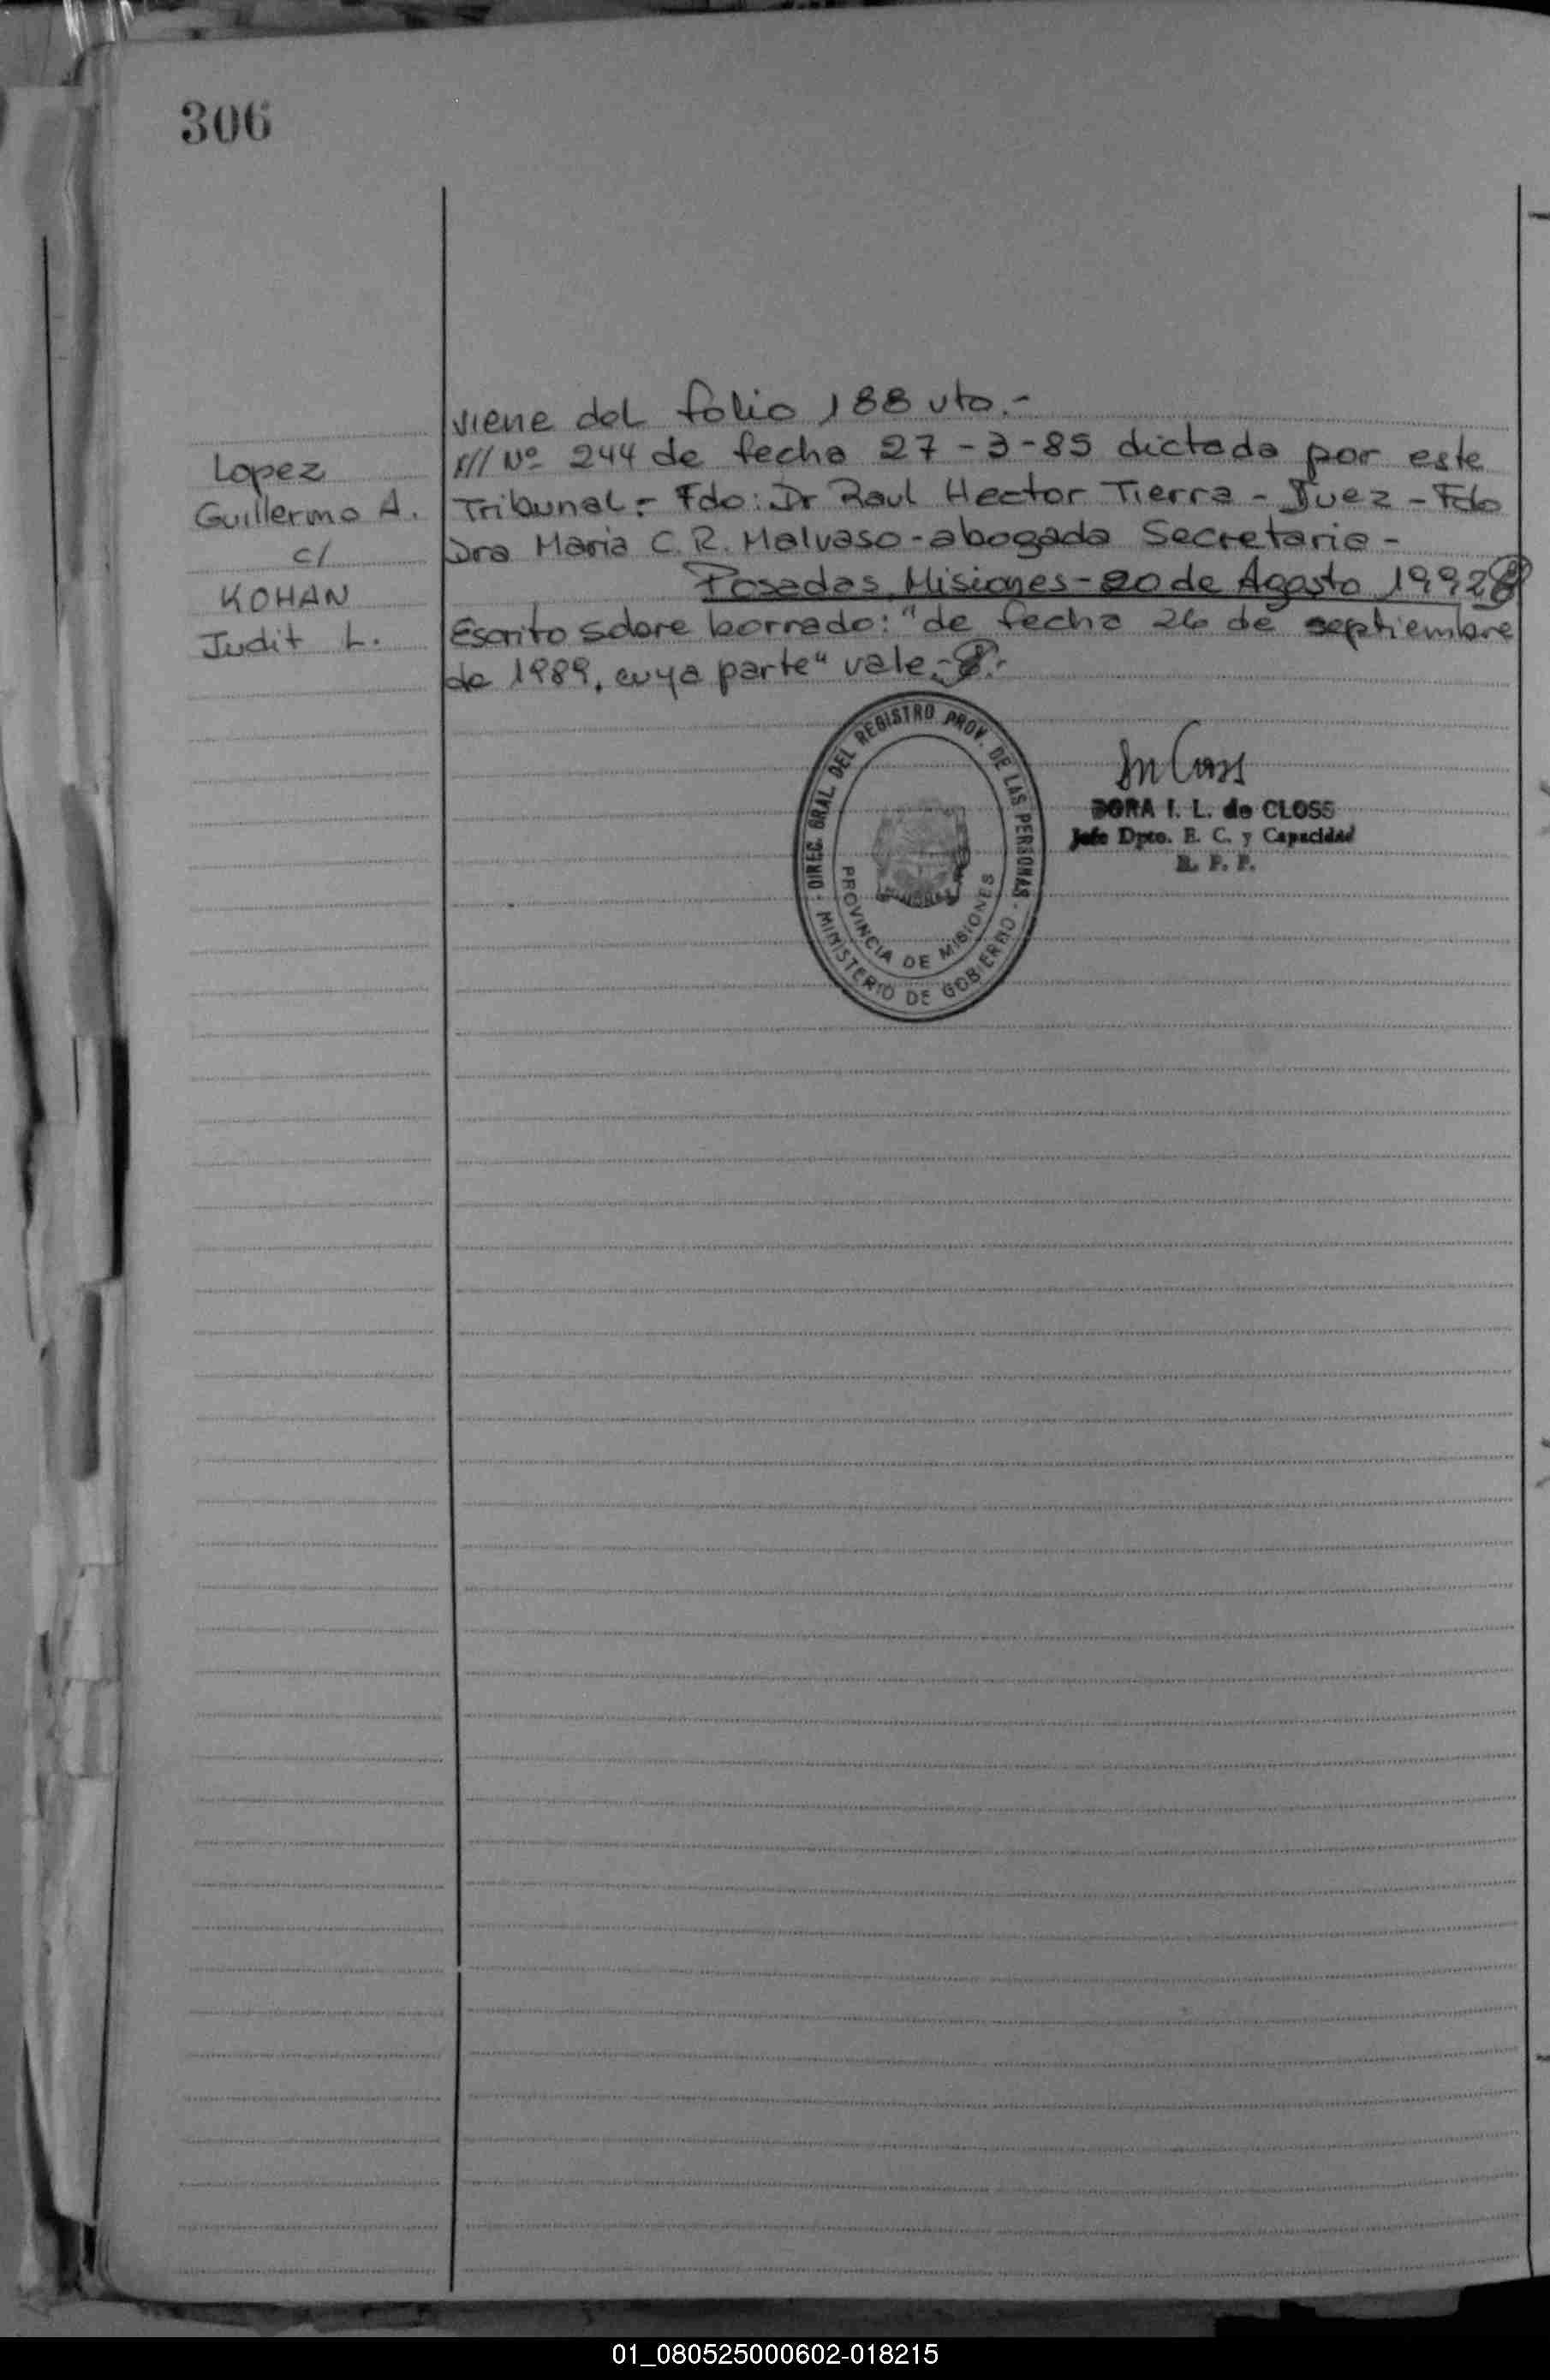 306
viene del folio 188 vto.-
/// Nº 244 de fecha 27-3-85 dictada por este
Tribunal.- Fdo: Dr Raul Hector Tierra - Juez - Fdo
Dra Maria C. R. Malvaso - abogada Secretaria -
Posadas, Misiones - 20 de Agosto 1992
Escrito sobre borrado: "de fecha 26 de septiembre
de 1989, cuya parte" vale.-
Lopez
Guillermo A.
c/
KOHAN
Judit L.
DIREC. GRAL DEL REGISTRO PROV. DE LAS PERSONAS
MINISTERIO DE GOBIERNO
PROVINCIA DE MISIONES
DORA I. L. de CLOSS
Jefe Dpto. E. C. y Capacidad
R. P. P.
01_080525000602-018215